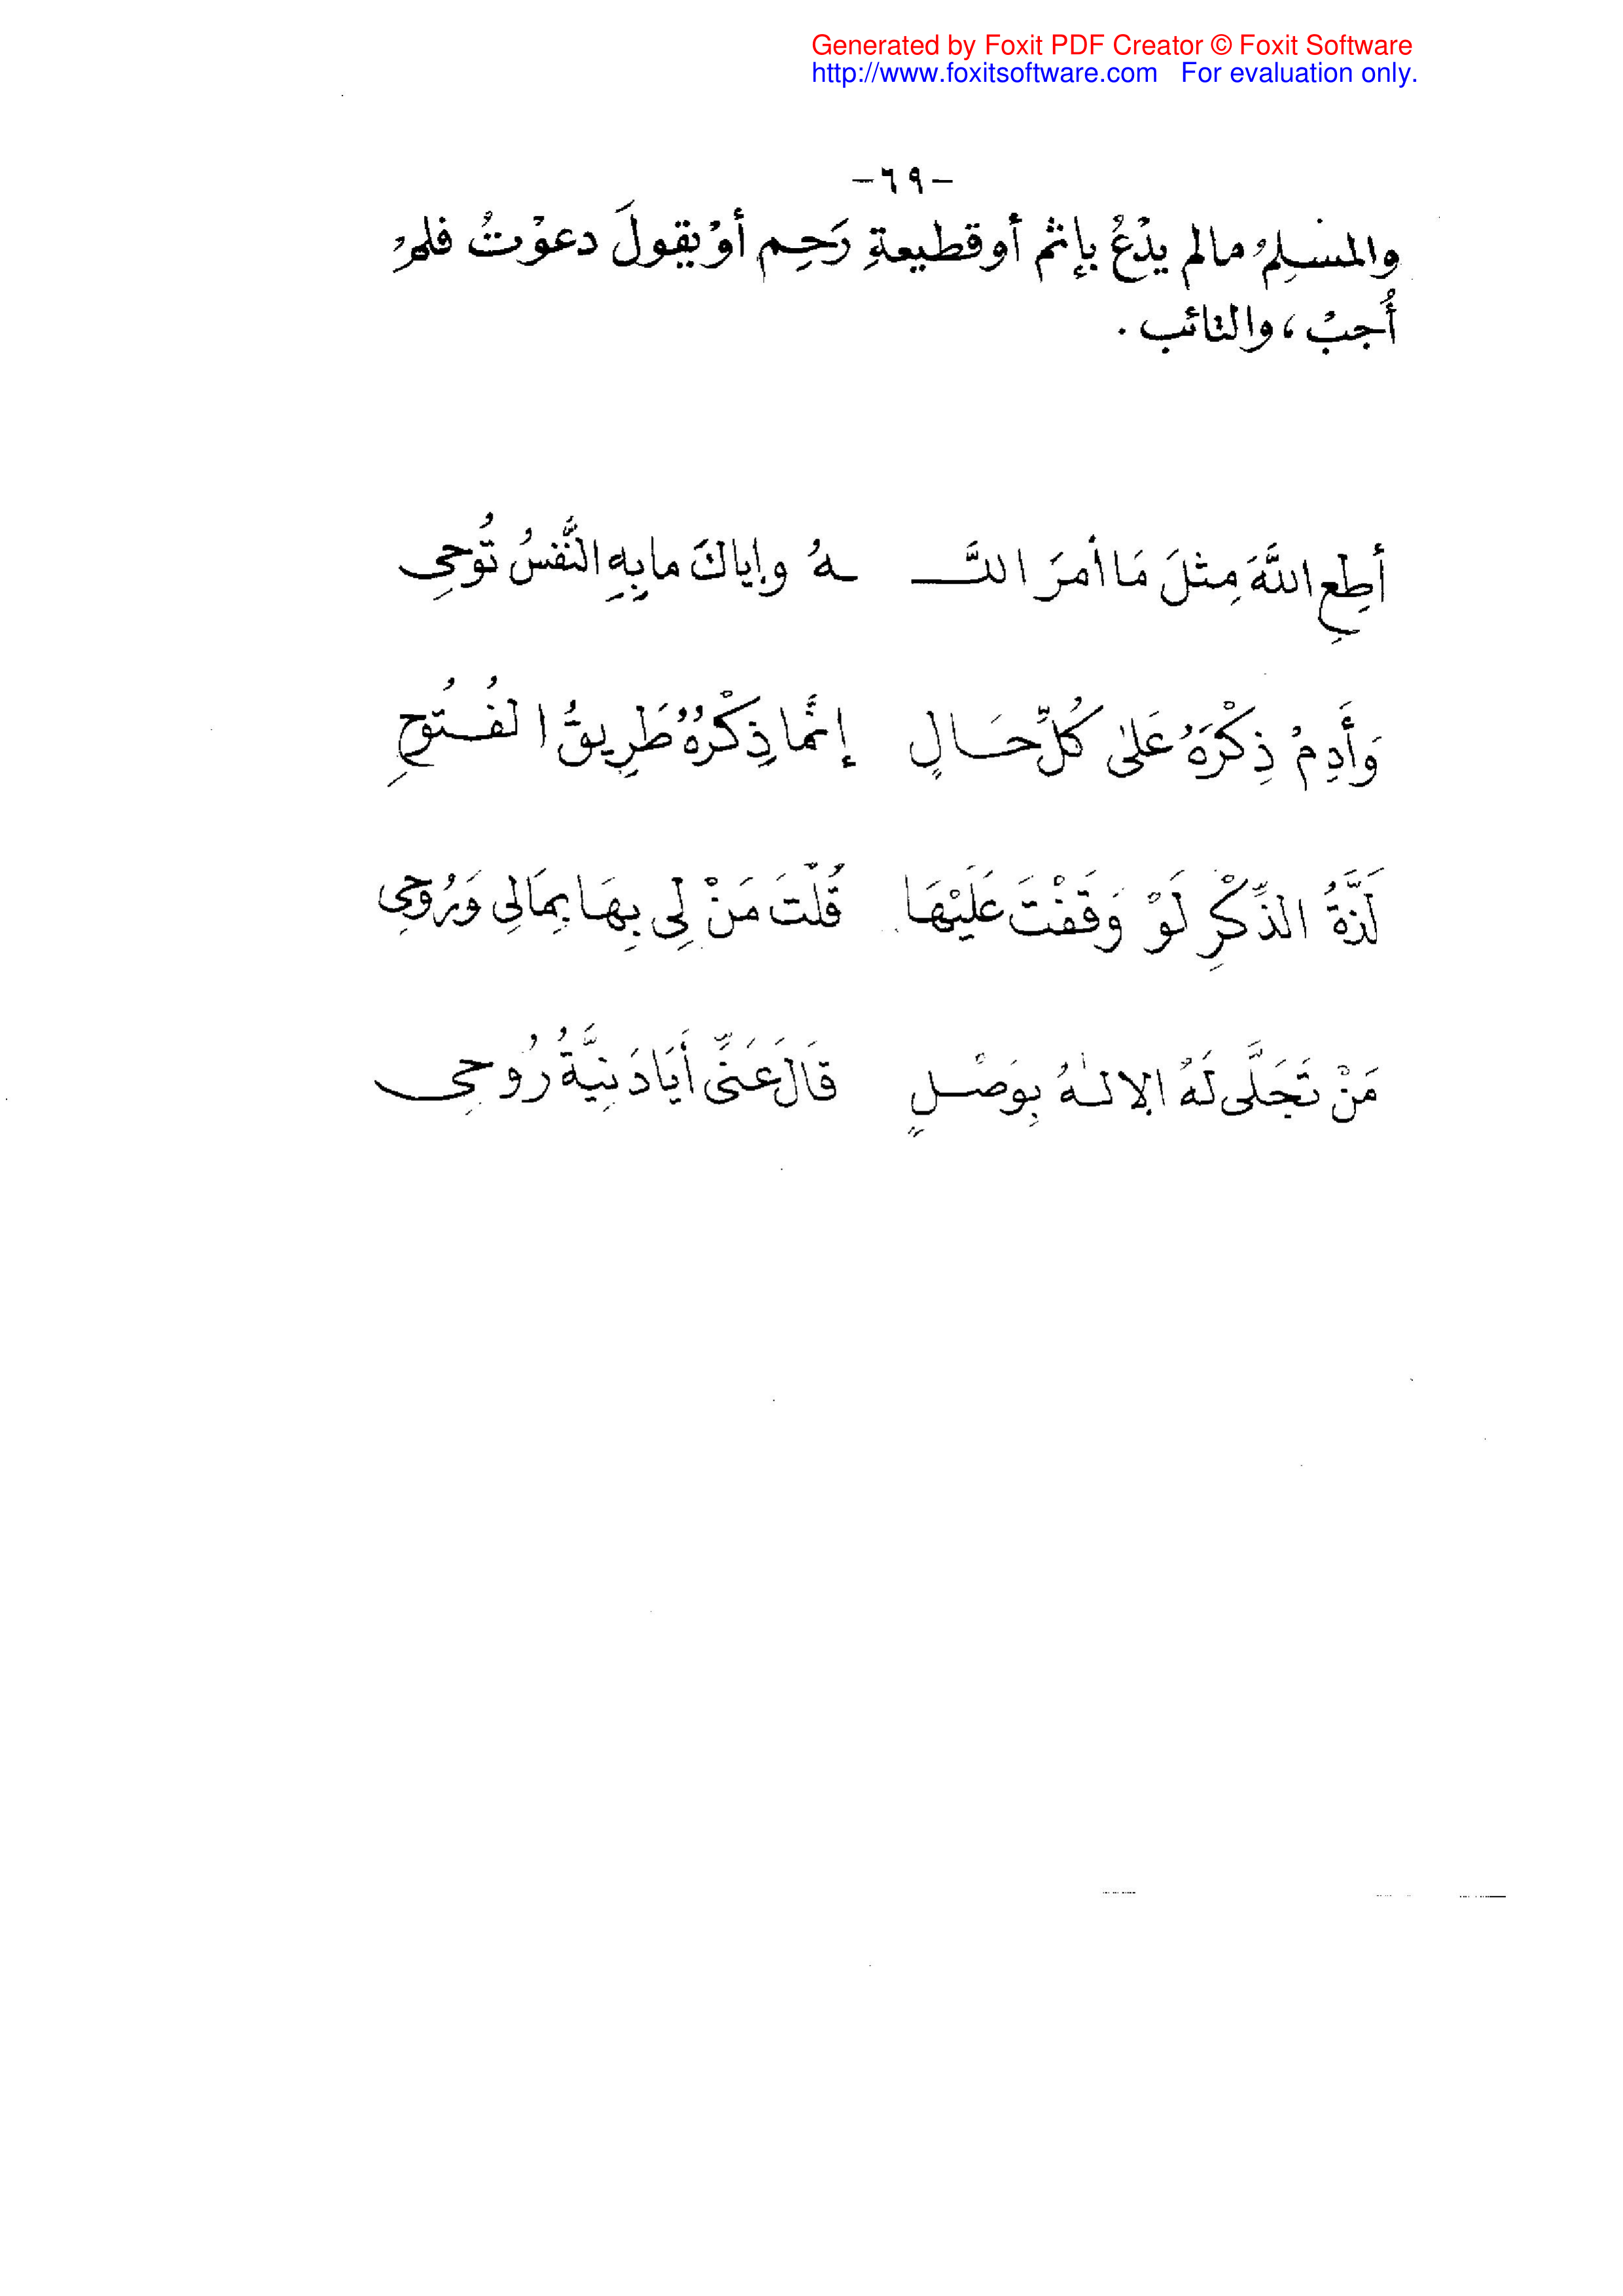 Generated by Foxit PDF Creator © Foxit Software
http://www.foxitsoftware.com For evaluation only.
-٦٩-
والمسْلِمُ مالم يدْعُ بإثم أو قطيعةِ رَحِم أوْ يقولَ دعوْتُ فلمْ
أُجبْ ، والتائب .
أطِعِ اللَّهَ مِثلَ مَا أمرَ اللَّـ ـهُ وإياكَ ما بِهِ النَّفسُ تُوحِي
وَأَدِمْ ذِكْرَهُ عَلىٰ كُلِّ حَـالٍ إنَّما ذِكْرُهُ طَرِيقُ الفُـتُوحِ
لَذَّةُ الذِّكْرِ لَوْ وَقَفْتَ عَلَيْهَا قُلْتَ مَنْ لِي بِهَا بِمَالِي وَرُوحِي
مَنْ تَجَلَّى لَهُ الإلـٰهُ بِوَصْـلٍ قَالَ عَنِّى أَيَا دَنِيَّةُ رُوحِـي